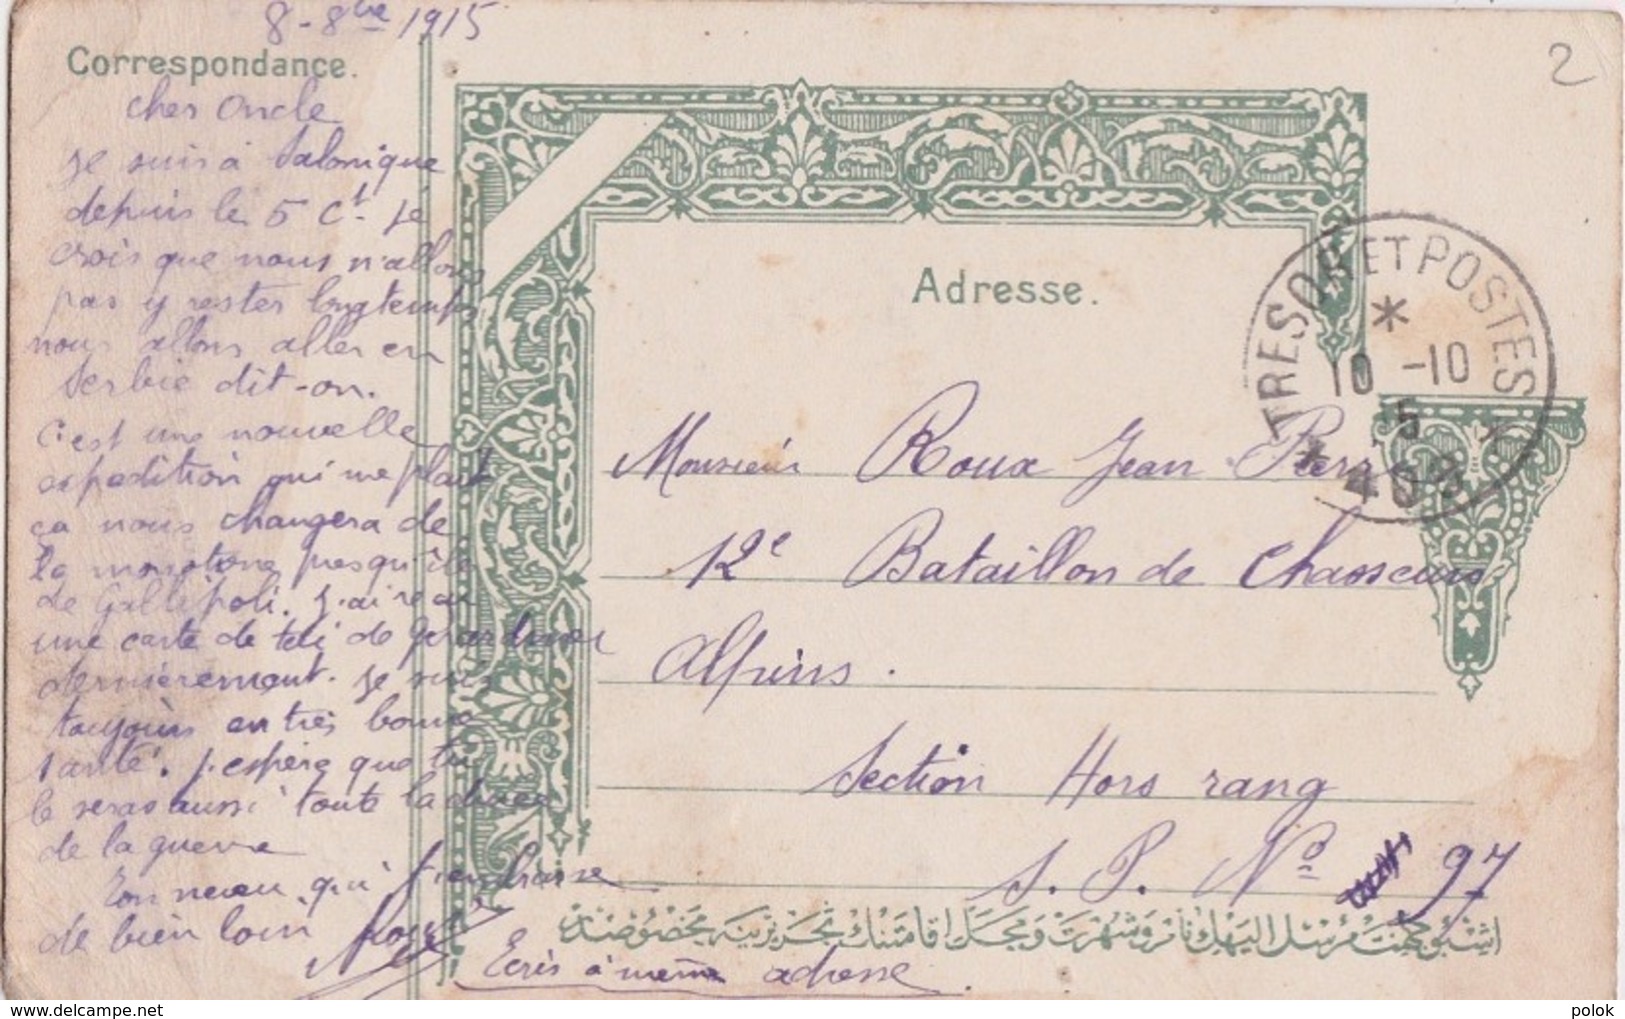 8-8bre 1915
Correspondance.
cher oncle
je suis à Salonique
depuis le 5 Ct. je
crois que nous n'allons
pas y rester longtemps
nous allons aller en
Serbie dit-on.
c'est une nouvelle
expedition qui me plait
ça nous changera de
la monotone presqu'île
de Gallipoli. j'ai reçu
une carte de toi de Gérardmer
dernièrement. je suis
toujours en très bonne
santé. j'espère que tu
le seras aussi toute la durée
de la guerre
Ton neveu qui t'embrasse
de bien loin
Ecris à même adresse
2
Adresse.
TRESOR ET POSTES
10 -10
15
* 403 *
Monsieur Roux Jean Pierre
12e Bataillon de Chasseurs
Alpins.
Section Hors rang
S. P. No 97
polok